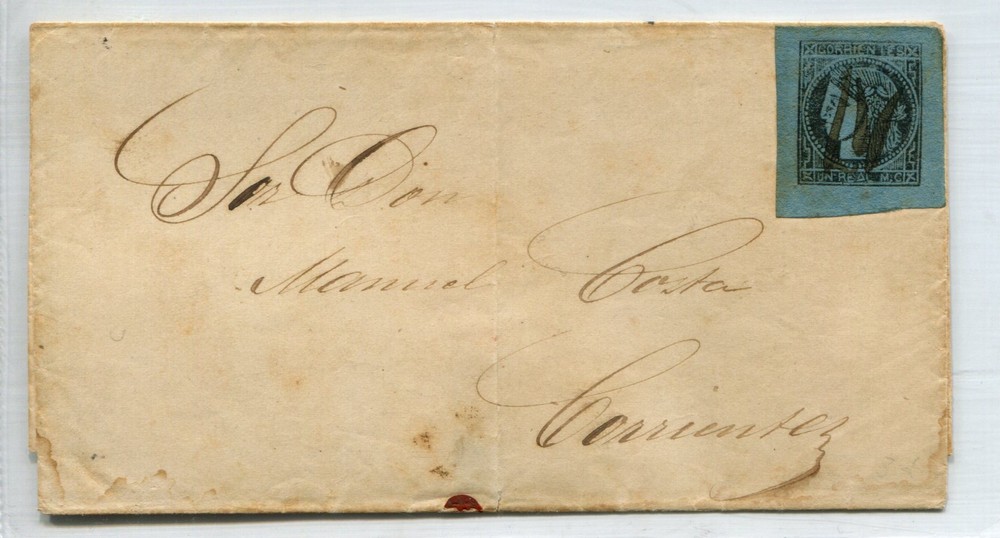 CORRIENTES
UN REAL M.C.
Sor Don
Manuel Costa
Corrientes